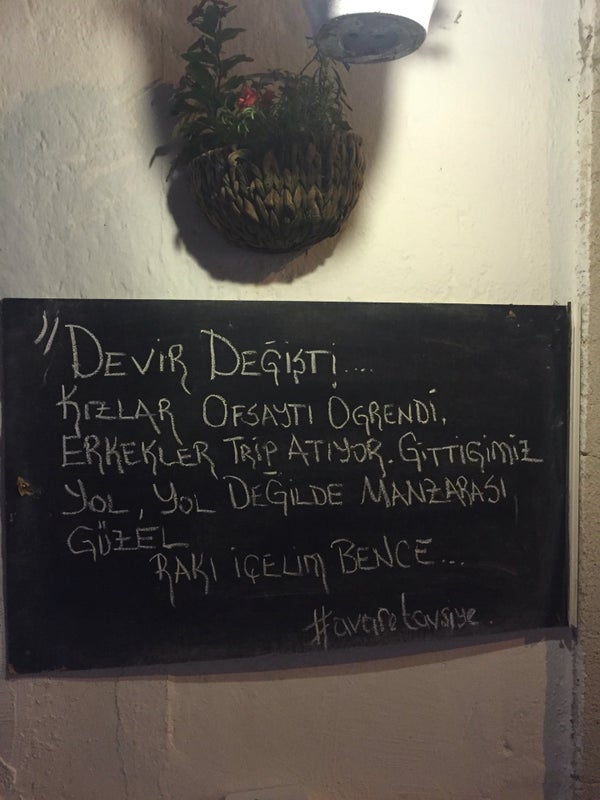 "DEVİR DEĞİŞTİ....
KIZLAR OFSAYTI ÖGRENDİ,
ERKEKLER TRİP ATIYOR. GİTTİGİMİZ
YOL, YOL DEĞİLDE MANZARASI
GÜZEL
RAKI İÇELİM BENCE...
#avaretavsiye.